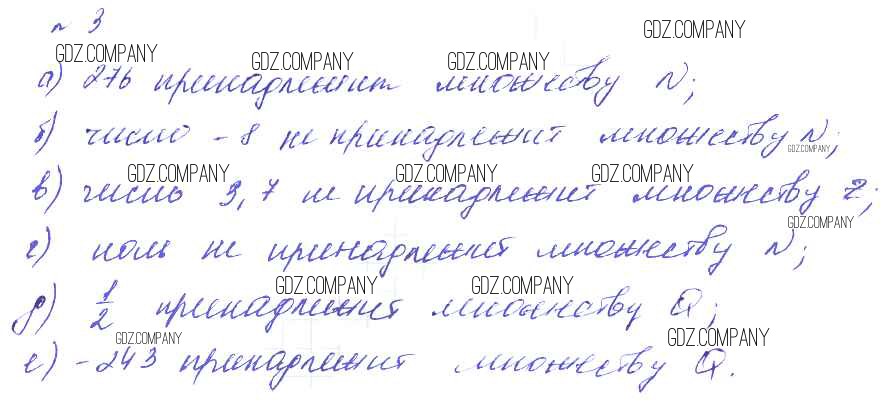 № 3
GDZ.COMPANY
GDZ.COMPANY GDZ.COMPANY GDZ.COMPANY
а) 276 принадлежит множеству N;
б) число -8 не принадлежит множеству N;
GDZ.COMPANY
GDZ.COMPANY GDZ.COMPANY GDZ.COMPANY
в) число 3,7 не принадлежит множеству Z;
GDZ.COMPANY
г) ноль не принадлежит множеству N;
GDZ.COMPANY GDZ.COMPANY
д) 1/2 принадлежит множеству Q;
GDZ.COMPANY GDZ.COMPANY
е) -243 принадлежит множеству Q.